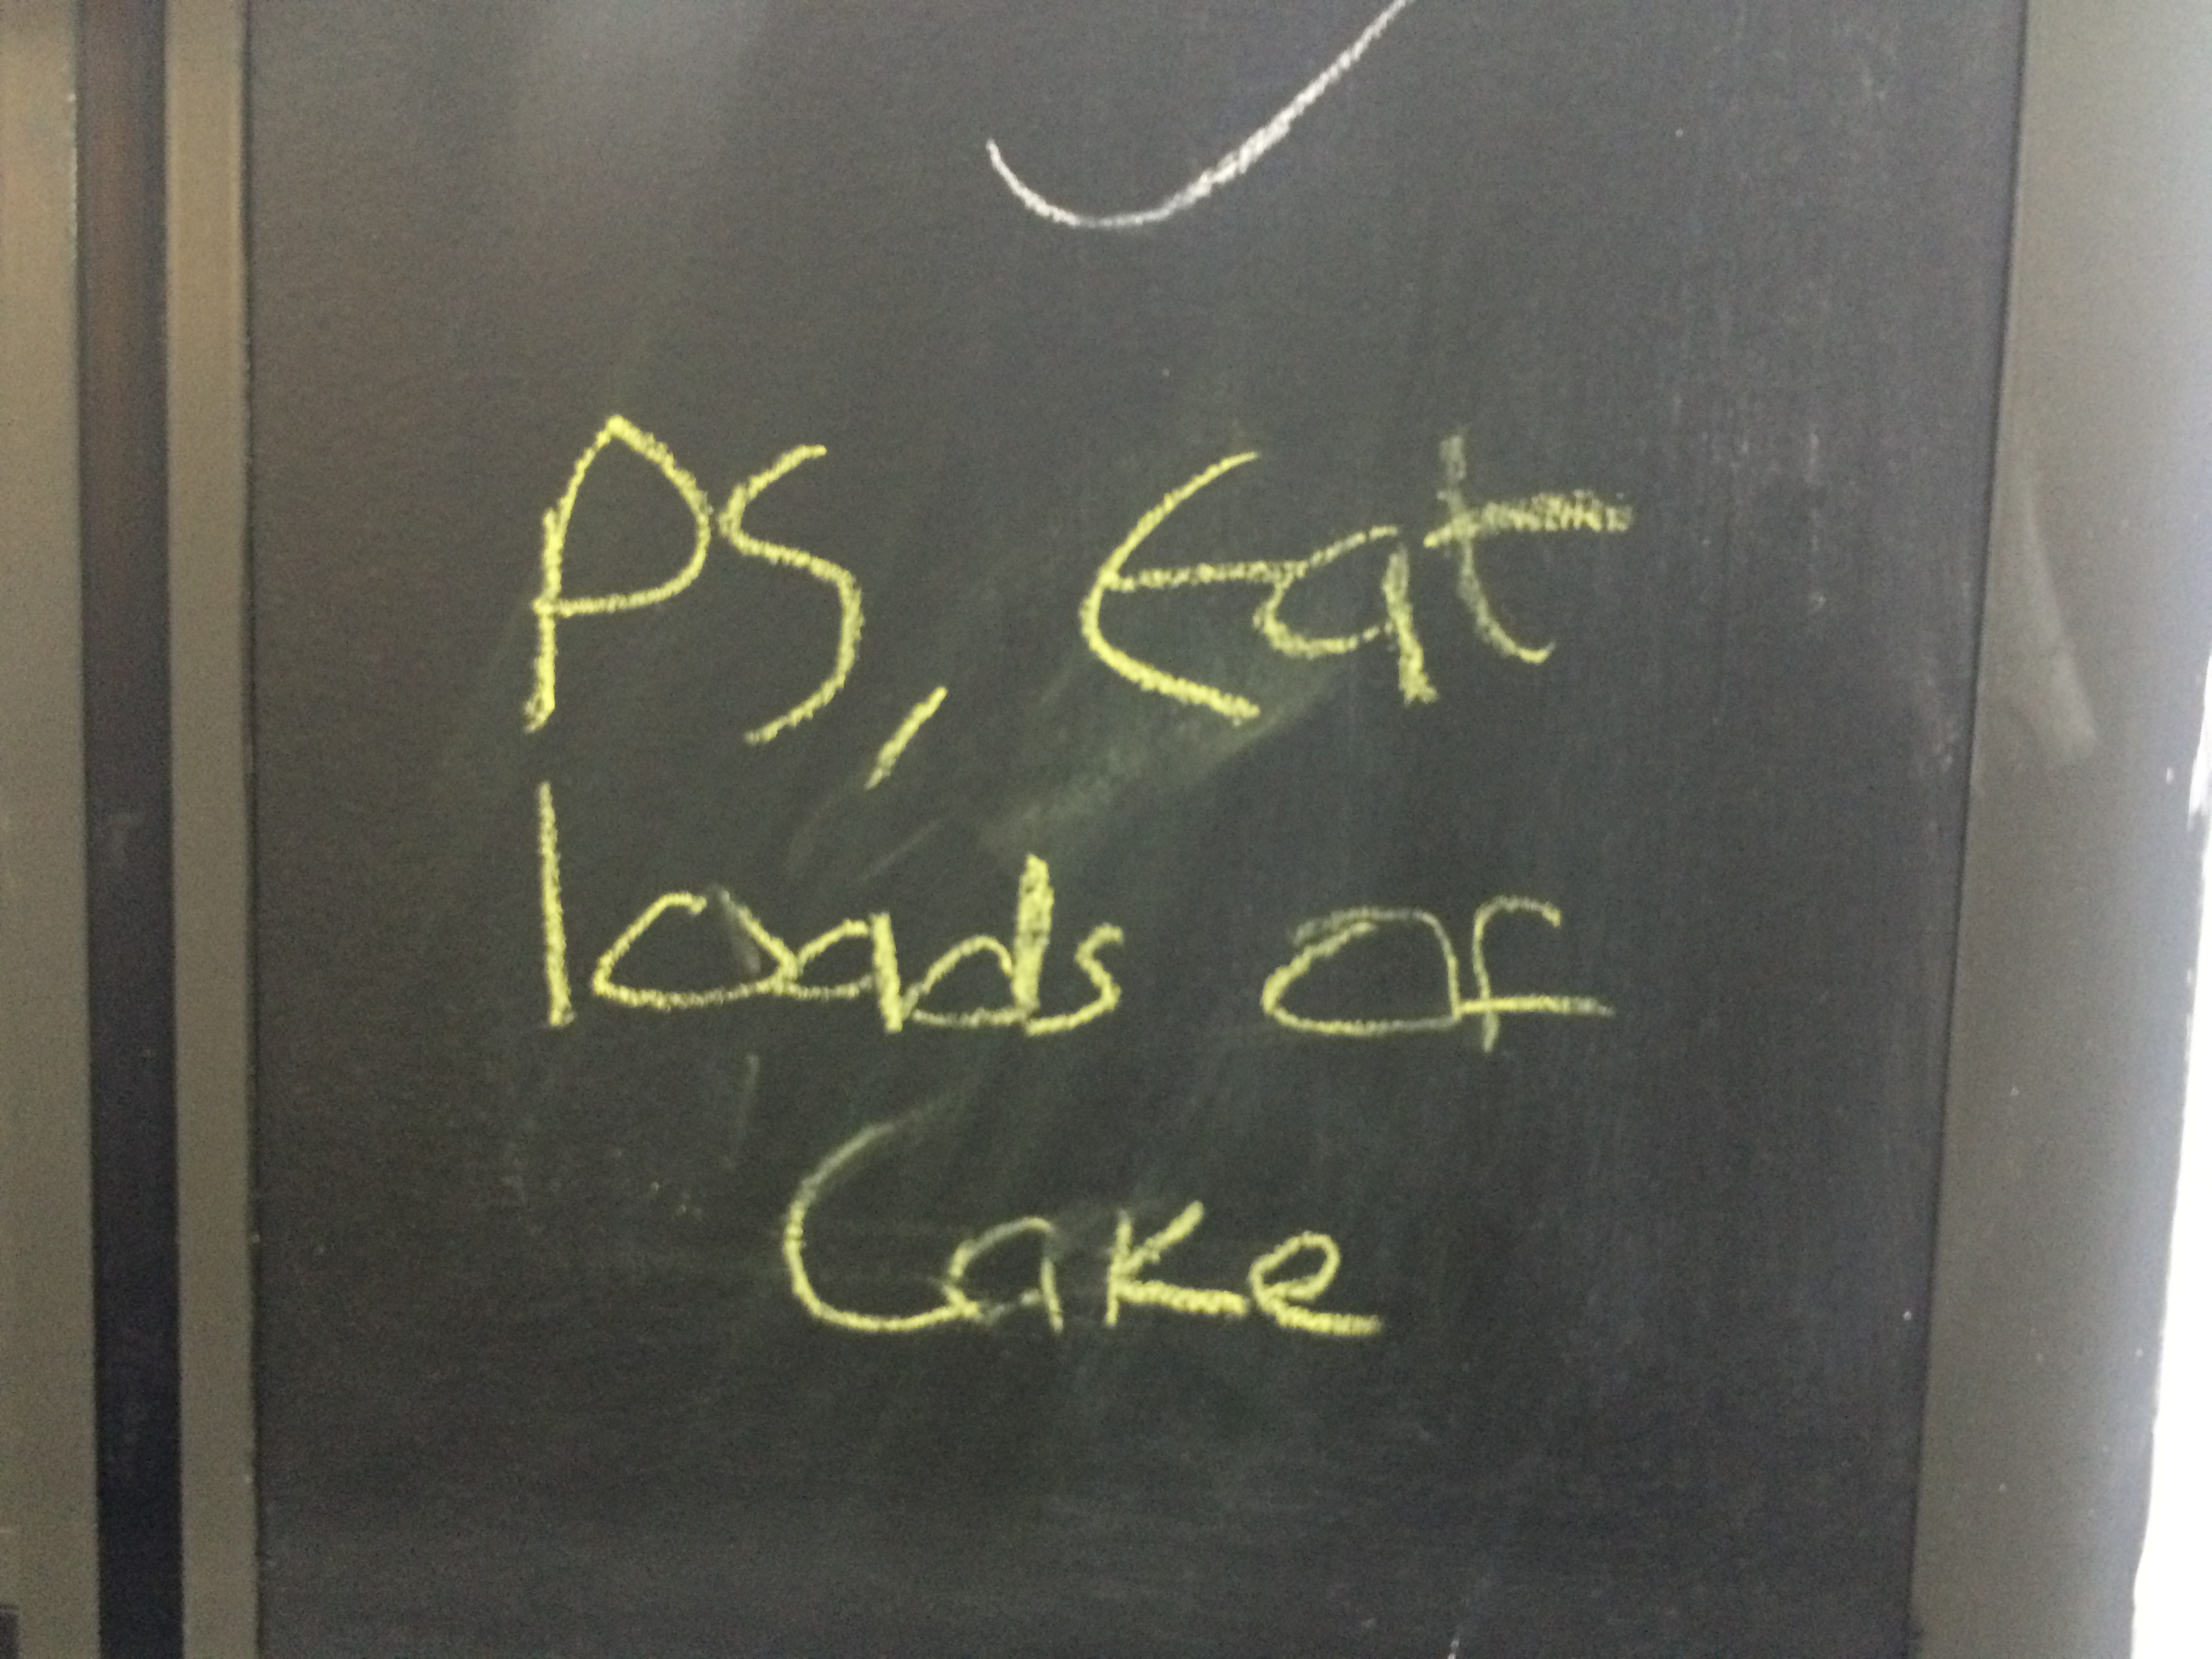 PS, Eat
loads of
Cake